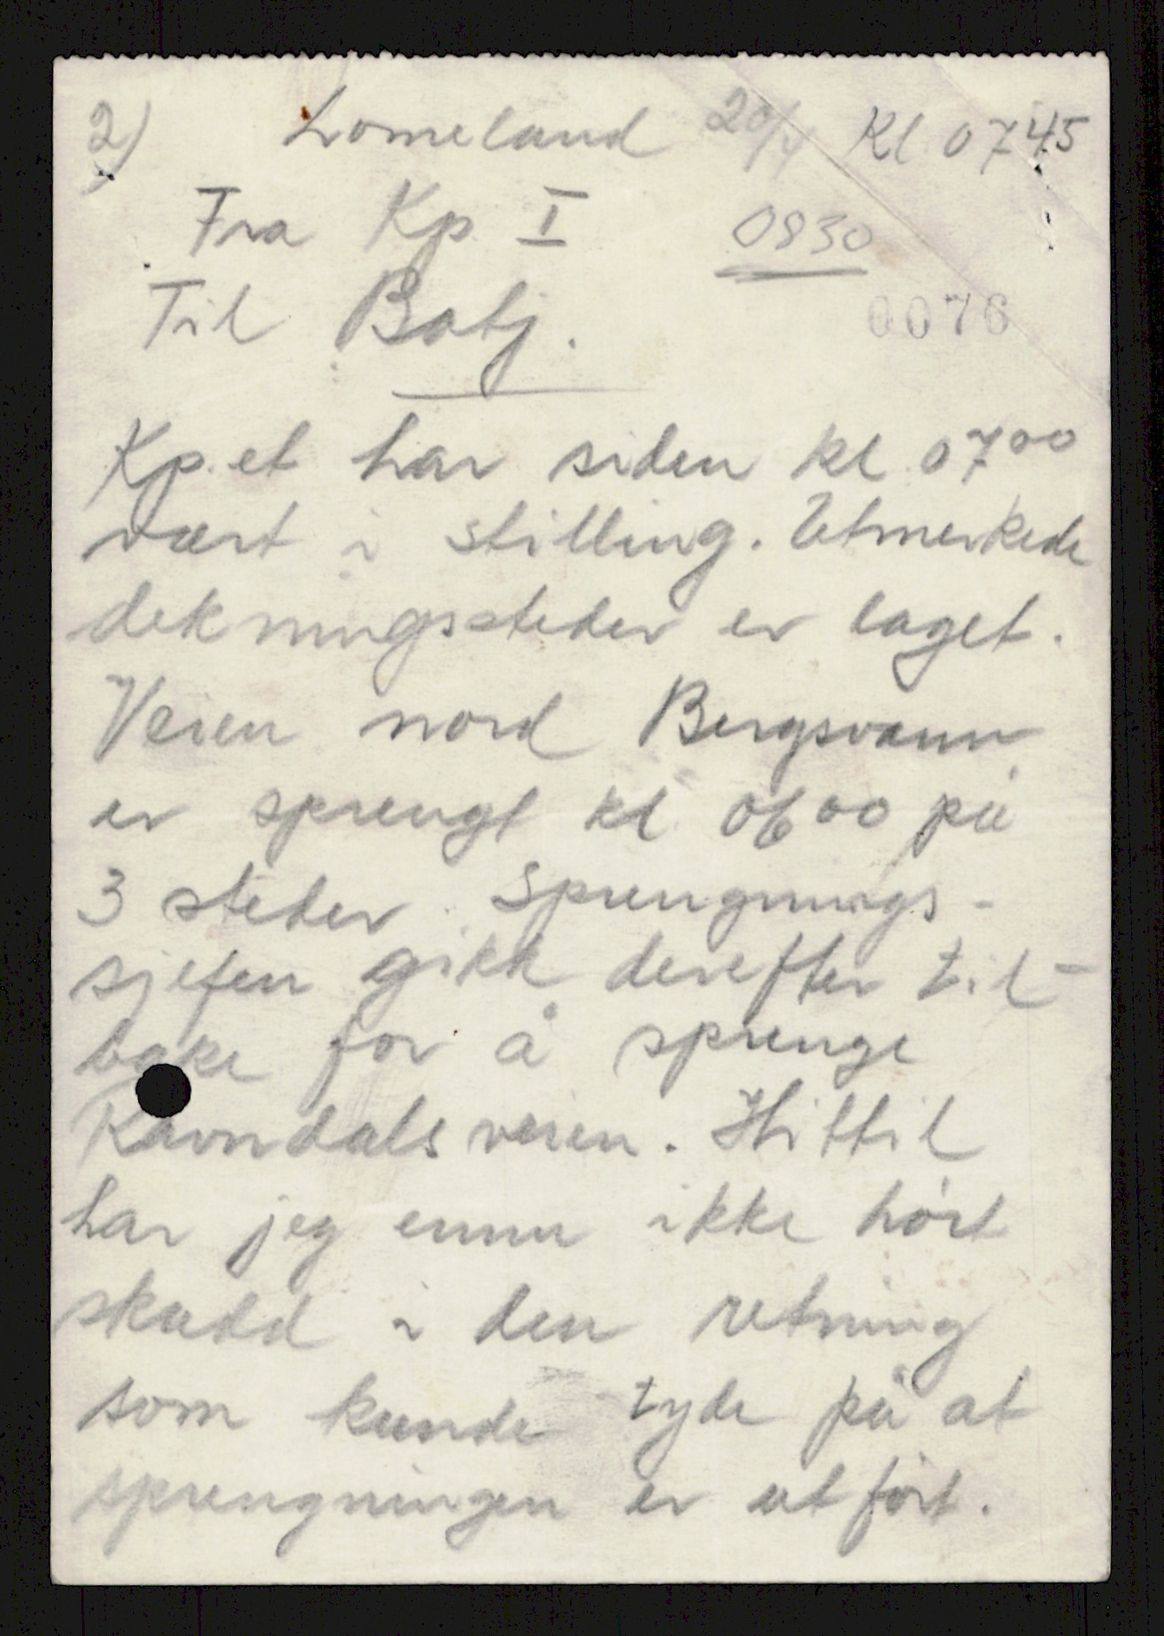 2) Lomeland 20/4 Kl 0745
Fra Kp I 0830
Til Batj.
0076
Kp.et har siden kl 0700
vært i stilling. Utmerkede
dekningssteder er laget.
Veien nord Bergsvann
er sprengt kl 0600 på
3 steder. Sprengnings-
sjefen gikk derefter til-
bake for å sprenge
Ravndalsveien. Hittil
har jeg ennu ikke hørt
skudd i den retning
som kunde tyde på at
sprengningen er utført.